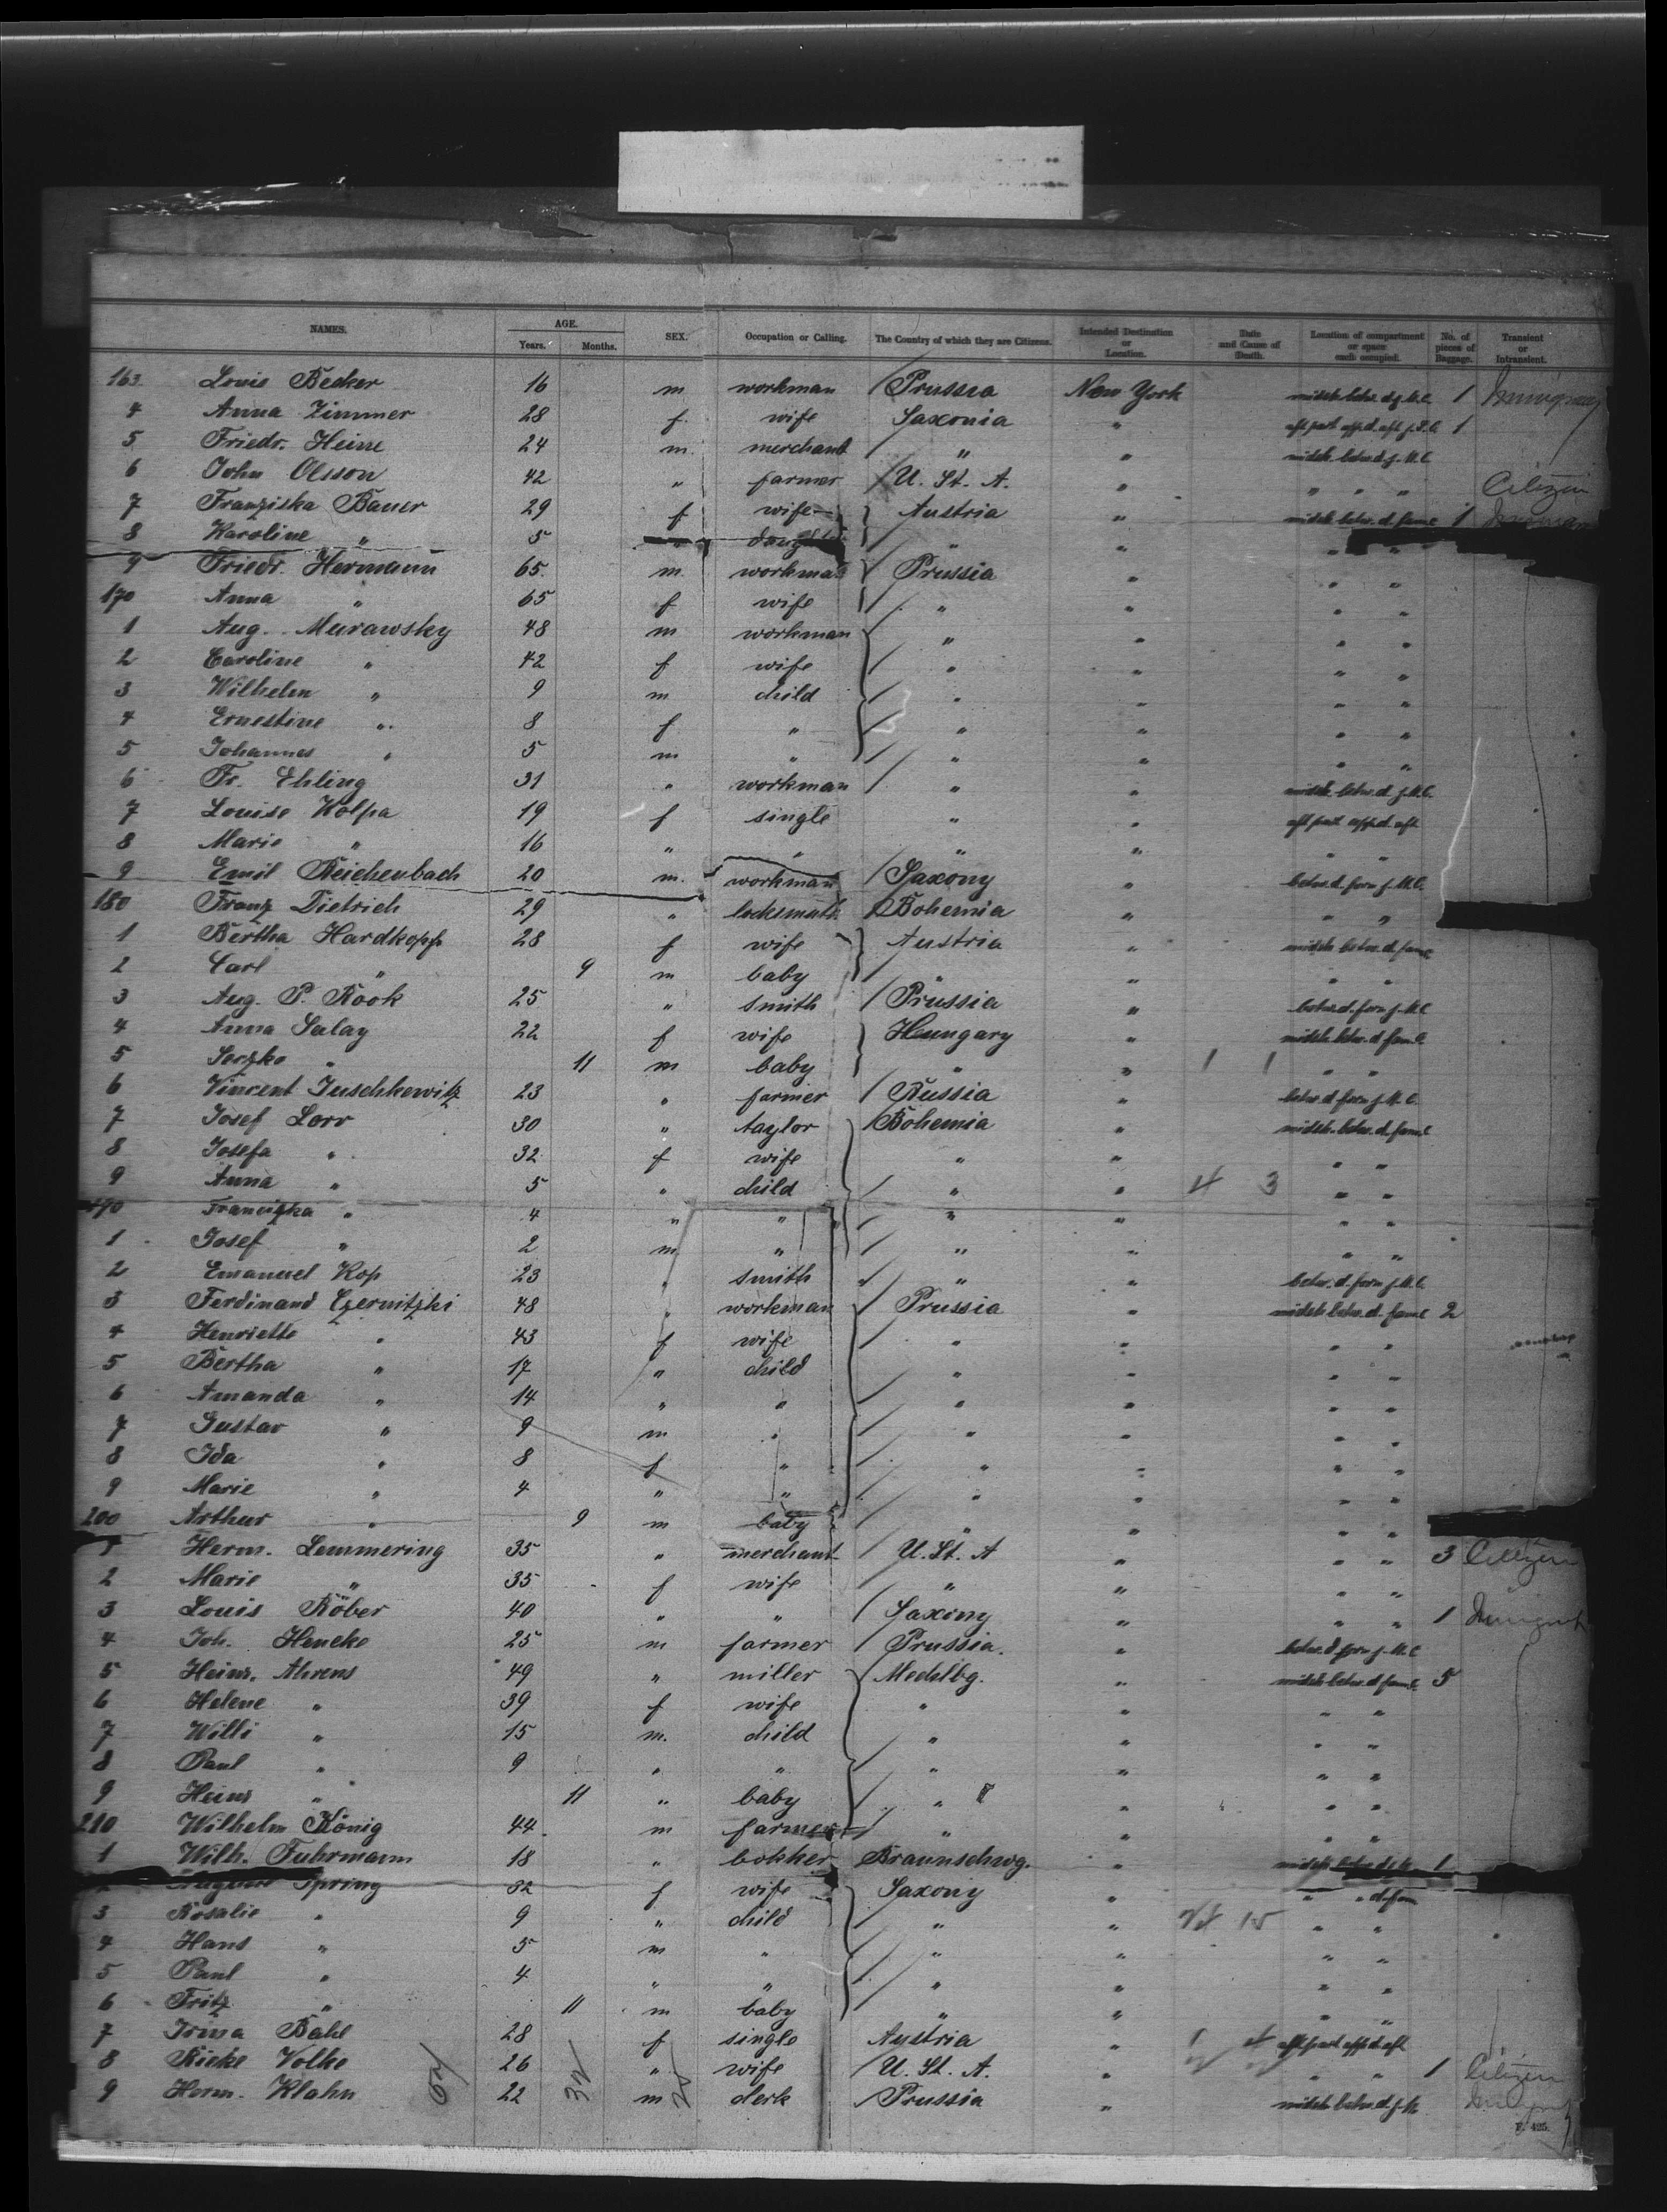 NAMES. AGE. Years. Months. SEX. Occupation or Calling. The Country of which they are Citizens. Intended Destination or Location. Date and Cause of Death. Location of compartment or space each occupied. No. of pieces of Baggage. Transient or Intransient.
163. Louis Becker 16 m workman Prussia New York midsh. betw. d. f. M. C. 1
4 Anna Zimmer 28 f. wife Saxonia " 1
5 Friedr. Heine 24 m. merchant " " midsh. betw. d. f. M. C.
6 John Olsson 42 " farmer U. St. A. " " " " Citizen
7 Franziska Bauer 29 f wife Austria " midsh. betw. d. fam. C 1
8 Karoline " 5 " " " " "
9 Friedr. Hermann 65. m. workman Prussia " " "
170 Anna " 65 f wife " " " "
1 Aug. Murawsky 48 m workman " " " "
2 Caroline " 42 f wife " " " "
3 Wilhelm " 9 m child " " " "
4 Ernestine " 8 f " " " " "
5 Johannes " 5 m " " " " "
6 Fr. Ehling 31 " workman " " midsh. betw. d. f. M. C.
7 Louise Kolpa 19 f single " " aft part upp. d. aft
8 Marie " 16 " " " " " "
9 Emil Reichenbach 20 m. workman Saxony " betw. d. forw. f. M. C.
180 Franz Dietrich 29 " locksmith Bohemia " " "
1 Bertha Hardkopf 28 f wife Austria " midsh. betw. d. fam. C
2 Carl " 9 m baby " " " "
3 Aug. P. Rook 25 " smith Prussia " betw. d. forw. f. M. C
4 Anna Salay 22 f wife Hungary " midsh. betw. d. fam. C.
5 " 11 m baby " " 1 1 " "
6 Vincent Juschkewitz 23 " farmer Russia " betw. d. forw. f. M. C.
7 Josef Lorr 30 " taylor Bohemia " midsh. betw. d. fam. C
8 Josefa " 32 f wife " " " "
9 Anna " 5 " child " " 4 3 " "
190 Franciska " 4 " " " " " "
1 Josef " 2 m " " " " "
2 Emanuel Kop 23 " smith " " betw. d. forw. f. M. C.
3 Ferdinand Czernitzki 48 " workman Prussia " midsh. betw. d. fam. C 2
4 Henriette " 43 f wife " " " "
5 Bertha " 17 " child " " " "
6 Amanda " 14 " " " " " "
7 Gustav " 9 m " " " " "
8 Ida " 8 f " " " " "
9 Marie " 4 " " " " " "
200 Arthur " 9 m baby " " " "
1 Herm. Lemmering 35 " merchant U. St. A " " " 3 Citizen
2 Marie " 35 f wife " " " "
3 Louis Röber 40 " " Saxony " " " 1
4 Joh. Heneke 25 m farmer Prussia. " betw. d. forw. f. M. C
5 Heinr. Ahrens 49 " miller Mecklbg. " midsh. betw. d. fam. C. 5
6 Helene " 39 f wife " " " "
7 Willi " 15 m. child " " " "
8 Paul " 9 " " " " " "
9 Heinr " 11 " baby " " " "
210 Wilhelm König 44 m farmer " " " "
1 Wilh. Fuhrmann 18 " Braunschwg. " midsh. 1
Spring 32 f wife Saxony " " " d. fam
3 Rosalie " 9 " child " " " "
4 Hans " 5 m " " " " "
5 Paul " 4 " " " " " "
6 Fritz " 11 m baby " " " "
7 Irma Bahl 28 f single Austria " 1 4 aft part upp. d. aft
8 Rieke Volke 26 " wife U. St. A. " " " 1 Citizen
9 Herm. Klahn 22 m clerk Prussia " midsh. betw. d. f. M.
F. 425.